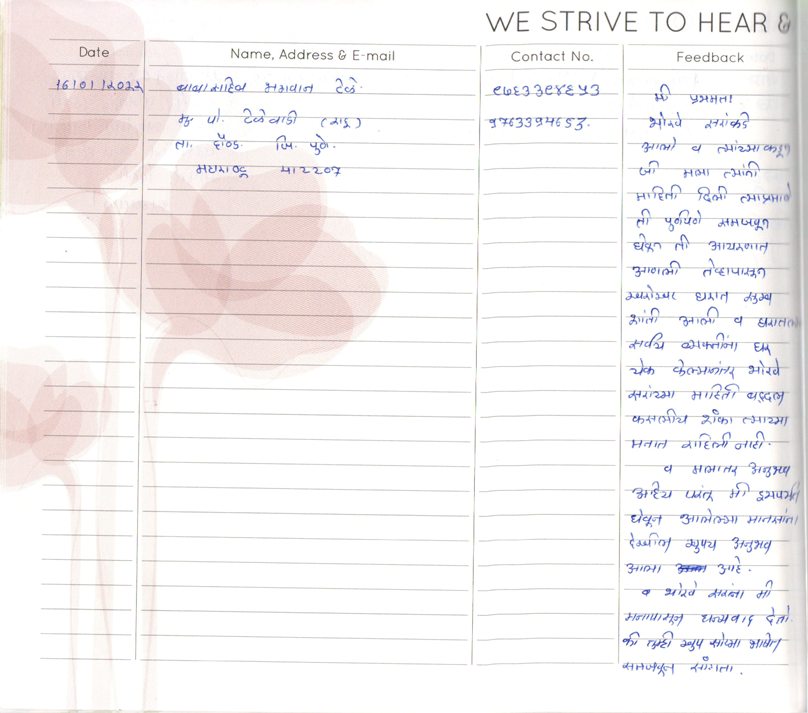 WE STRIVE TO HEAR &
Date Name, Address & E-mail Contact No. Feedback
१६/०१/२०२२ बाबासाहेब भगवान टेळे. ९७६३३९४६५३
मु. पो. टेळेवाडी (राहू) 9763394653.
ता. दौण्ड. जि. पुणे.
महाराष्ट्र ४१२२०७
मी प्रथमता
भोरवे सरांकडे
आलो व त्यांच्याकडून
जी मला त्यांनी
माहिती दिली त्याप्रमाणे
ती पुर्णपणे समजवून
घेवून ती आचरणात
आणली तेव्हापासून
खरोखर घरात सुख
शांती आली व घरातल्या
सर्वच व्यक्तींना घर
चेक केल्यानंतर भोरवे
सरांच्या माहिती बद्दल
कसलीच शंका त्यांच्या
मनात राहिली नाही.
व मला तर अनुभव
आहेच परंतू मी इथपर्यंत
घेवून आलेल्या माणसांना
देखील खुपच अनुभव
आला आहे.
व भोरवे सरांना मी
मनापासून धन्यवाद देतो.
की तुम्ही खुप सोप्या भाषेत
समजवून सांगता.